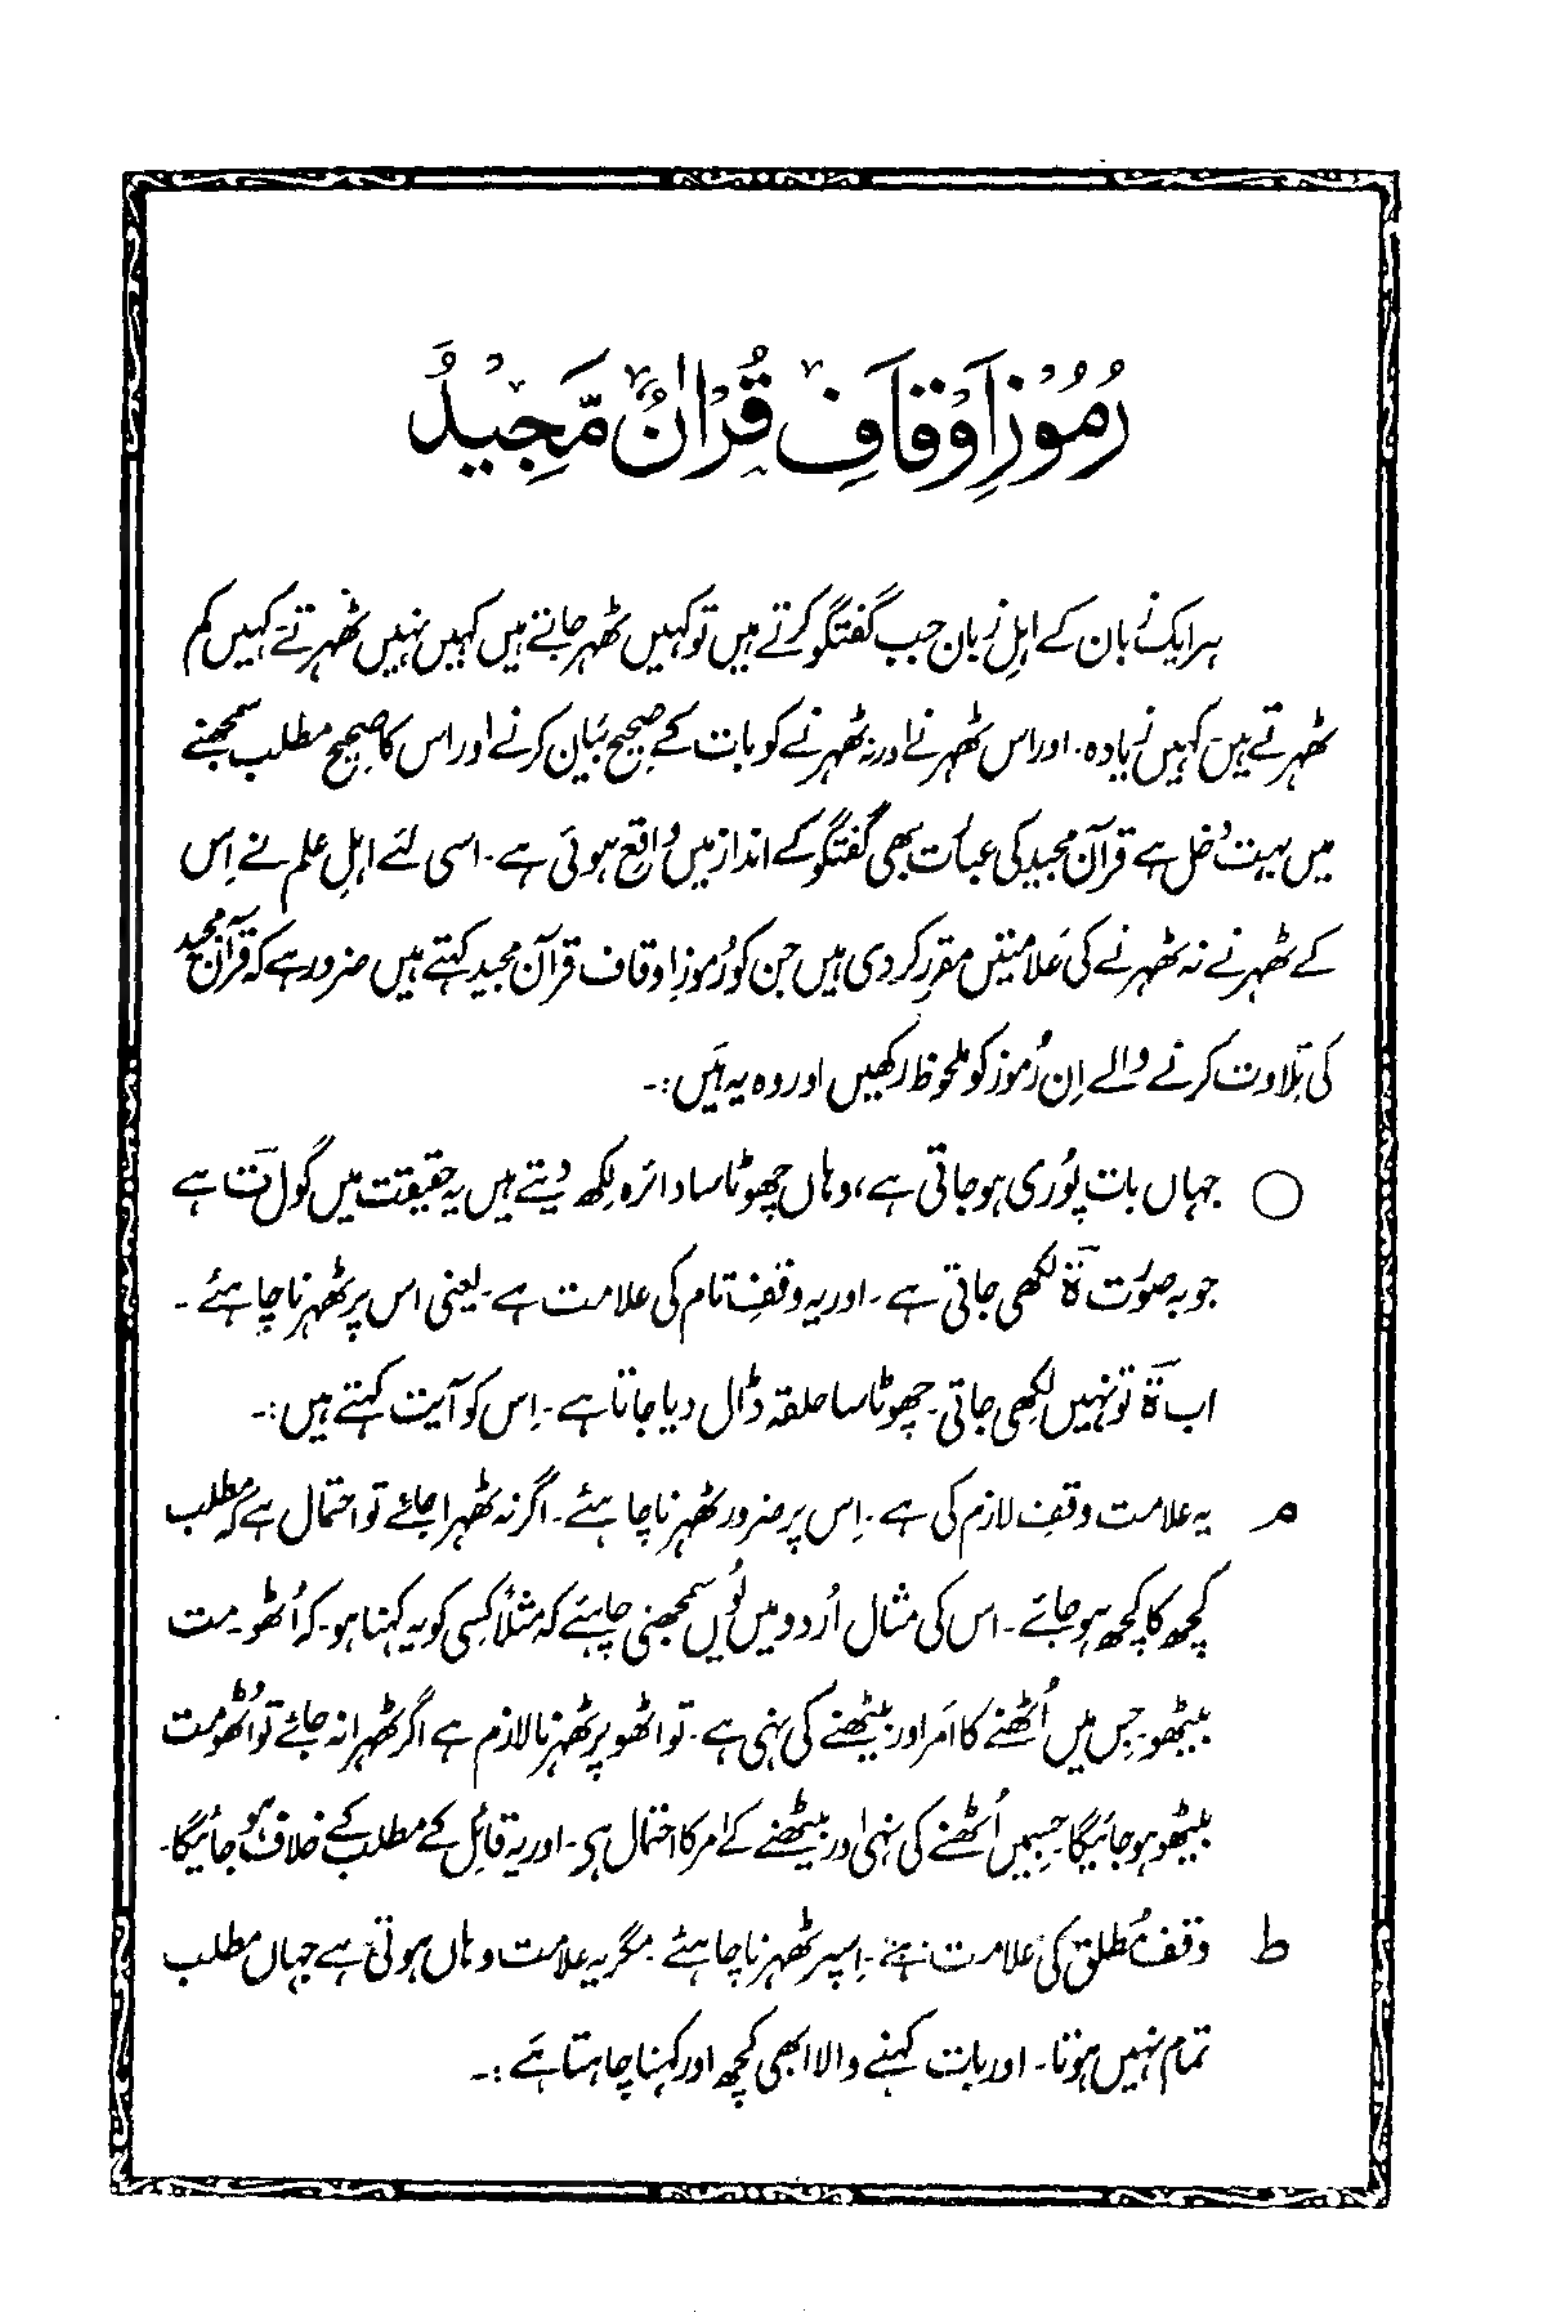 رُمُوْزِ اَوْقَافِ قُرْاٰنْ مَّجِيْدْ
ہر ایک زبان کے اہلِ زبان جب گفتگو کرتے ہیں تو کہیں ٹھہر جاتے ہیں کہیں نہیں ٹھہرتے کہیں کم
ٹھہرتے ہیں کہیں زیادہ۔ اور اس ٹھہرنے اور نہ ٹھہرنے کو بات کے صحیح بیان کرنے اور اس کا صحیح مطلب سمجھنے
میں بہت دخل ہے قرآن مجید کی عبارت بھی گفتگو کے انداز میں واقع ہوئی ہے۔ اسی لئے اہلِ علم نے اِس
کے ٹھہرنے نہ ٹھہرنے کی علامتیں مقرر کر دی ہیں جن کو رُموزِ اوقاف قرآن مجید کہتے ہیں ضرور ہے کہ قرآن مجید
کی تلاوت کرنے والے اِن رُموز کو ملحوظ رکھیں اور وہ یہ ہیں:۔
○ جہاں بات پُوری ہو جاتی ہے، وہاں چھوٹا سا دائرہ لکھ دیتے ہیں یہ حقیقت میں گول ت ہے
جو بہ صورت ۃ لکھی جاتی ہے۔ اور یہ وقفِ تام کی علامت ہے۔ یعنی اس پر ٹھہرنا چاہئے۔
اب ۃ تو نہیں لکھی جاتی۔ چھوٹا سا حلقہ ڈال دیا جاتا ہے۔ اِس کو آیت کہتے ہیں:۔
م یہ علامت وقفِ لازم کی ہے۔ اِس پر ضرور ٹھہرنا چاہئے۔ اگر نہ ٹھہرا جائے تو احتمال ہے کہ مطلب
کچھ کا کچھ ہو جائے۔ اس کی مثال اُردو میں یُوں سمجھنی چاہئے کہ مثلاً کِسی کو یہ کہنا ہو۔ کہ اُٹھو۔ مت
بیٹھو۔ جِس میں اُٹھنے کا اَمر اور بیٹھنے کی نہی ہے۔ تو اٹھو پر ٹھہرنا لازم ہے اگر ٹھہرا نہ جائے تو اُٹھو مت
بیٹھو ہو جائیگا۔ جِسمیں اُٹھنے کی نہی اور بیٹھنے کے امر کا احتمال ہی۔ اور یہ قائِل کے مطلب کے خلاف ہو جائیگا۔
ط وقف مُطلق کی علامت ہے۔ اِسپر ٹھہرنا چاہئے۔ مگر یہ علامت وہاں ہوتی ہے جہاں مطلب
تمام نہیں ہوتا۔ اور بات کہنے والا ابھی کچھ اور کہنا چاہتا ہے:۔